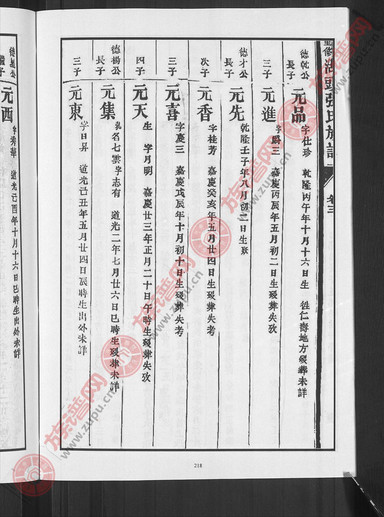 重修湖頭張氏族譜 卷三
德乾公
長子
元品 字仕珍 乾隆丙午年十月十六日生 往仁壽地方歿葬未詳
三子
元進 字 三 嘉慶丙辰年五月初二日生歿葬失攷
德才公
長子
元先 乾隆壬子年八月初二日生歿
次子
元香 字桂芳 嘉慶癸亥年五月廿四日生歿葬失考
三子
元喜 字慶三 嘉慶戊辰年十月初十日生歿葬失考
四子
元天 生 字月明 嘉慶廿三年正月二十日午時生歿葬失攷
德揚公
長子
元集 名七雲字志有 道光二年七月廿六日巳時生歿葬未詳
三子
元東 字日昇 道光己丑年五月廿四日辰時生出外未詳
德 公
子
元西 字秀 道光己酉年十月十六日巳時生出外未詳
218
族谱网
www.zupu.cn
族谱网
www.zupu.cn